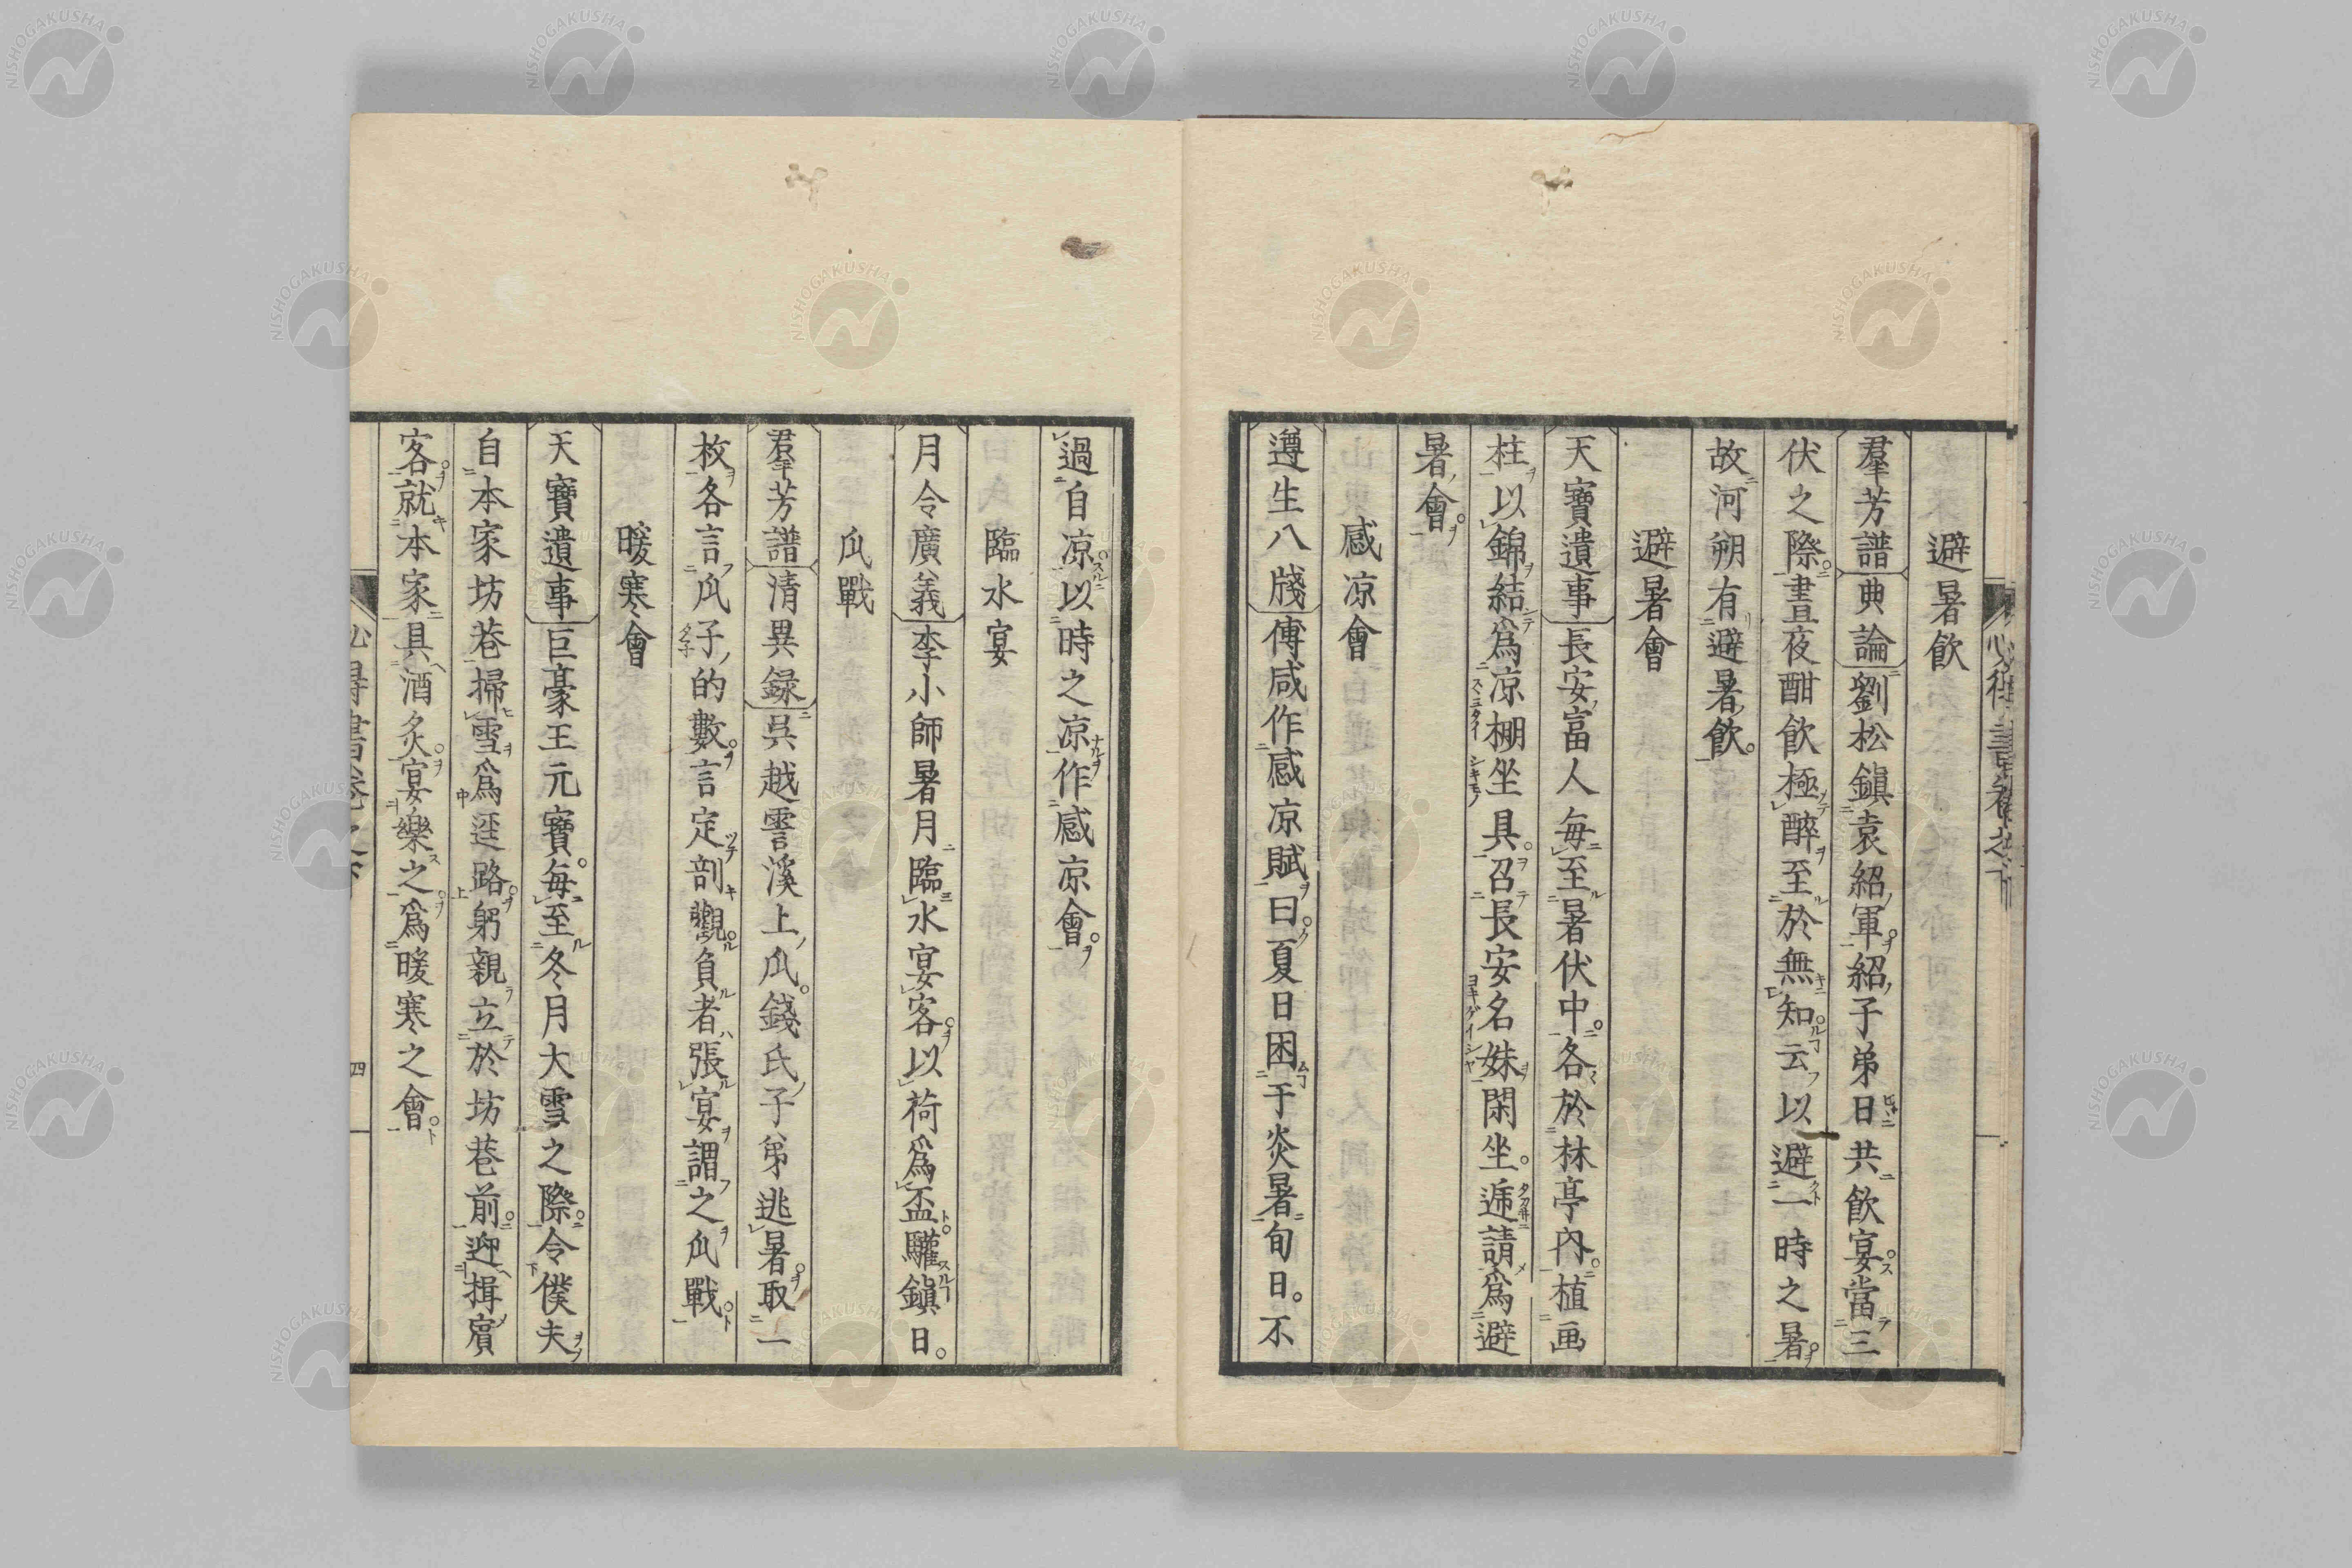 避暑飲
羣芳譜典論劉松鎭袁紹軍紹子弟日共飲宴當三
伏之際晝夜酣飲極醉至於無知云以避一時之暑
故河朔有避暑飲
避暑會
天寶遺事長安富人每至暑伏中各於林亭內植画
柱以錦結爲凉棚坐具召長安名妹閑坐遞請爲避
暑會
感凉會
遵生八牋傅咸作感凉賦曰夏日困于炎暑旬日不
過自凉以時之凉作感凉會
臨水宴
月令廣義李小師暑月臨水宴客以荷爲盃驩鎭日
瓜戰
羣芳譜清異録呉越霅溪上瓜錢氏子弟逃暑取一
枚各言瓜子的數言定剖觀負者張宴謂之瓜戰
暖寒會
天寶遺事巨豪王元寶每至冬月大雪之際令僕夫
自本家坊巷掃雪爲逕路躬親立於坊巷前迎揖賓
客就本家具酒炙宴樂之爲暖寒之會
四
NISHOGAKUSHA